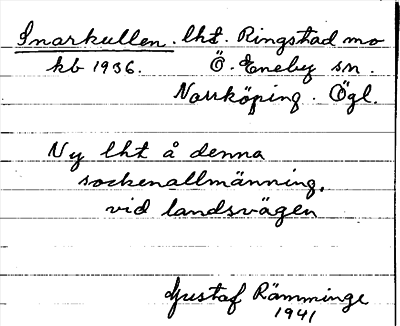 Snarkullen. lht. Ringstad mo
kb 1936. Ö. Eneby sn.
Norrköping. Ögl.
Ny lht å denna
sockenallmänning,
vid landsvägen
Gustaf Rämminge
1941